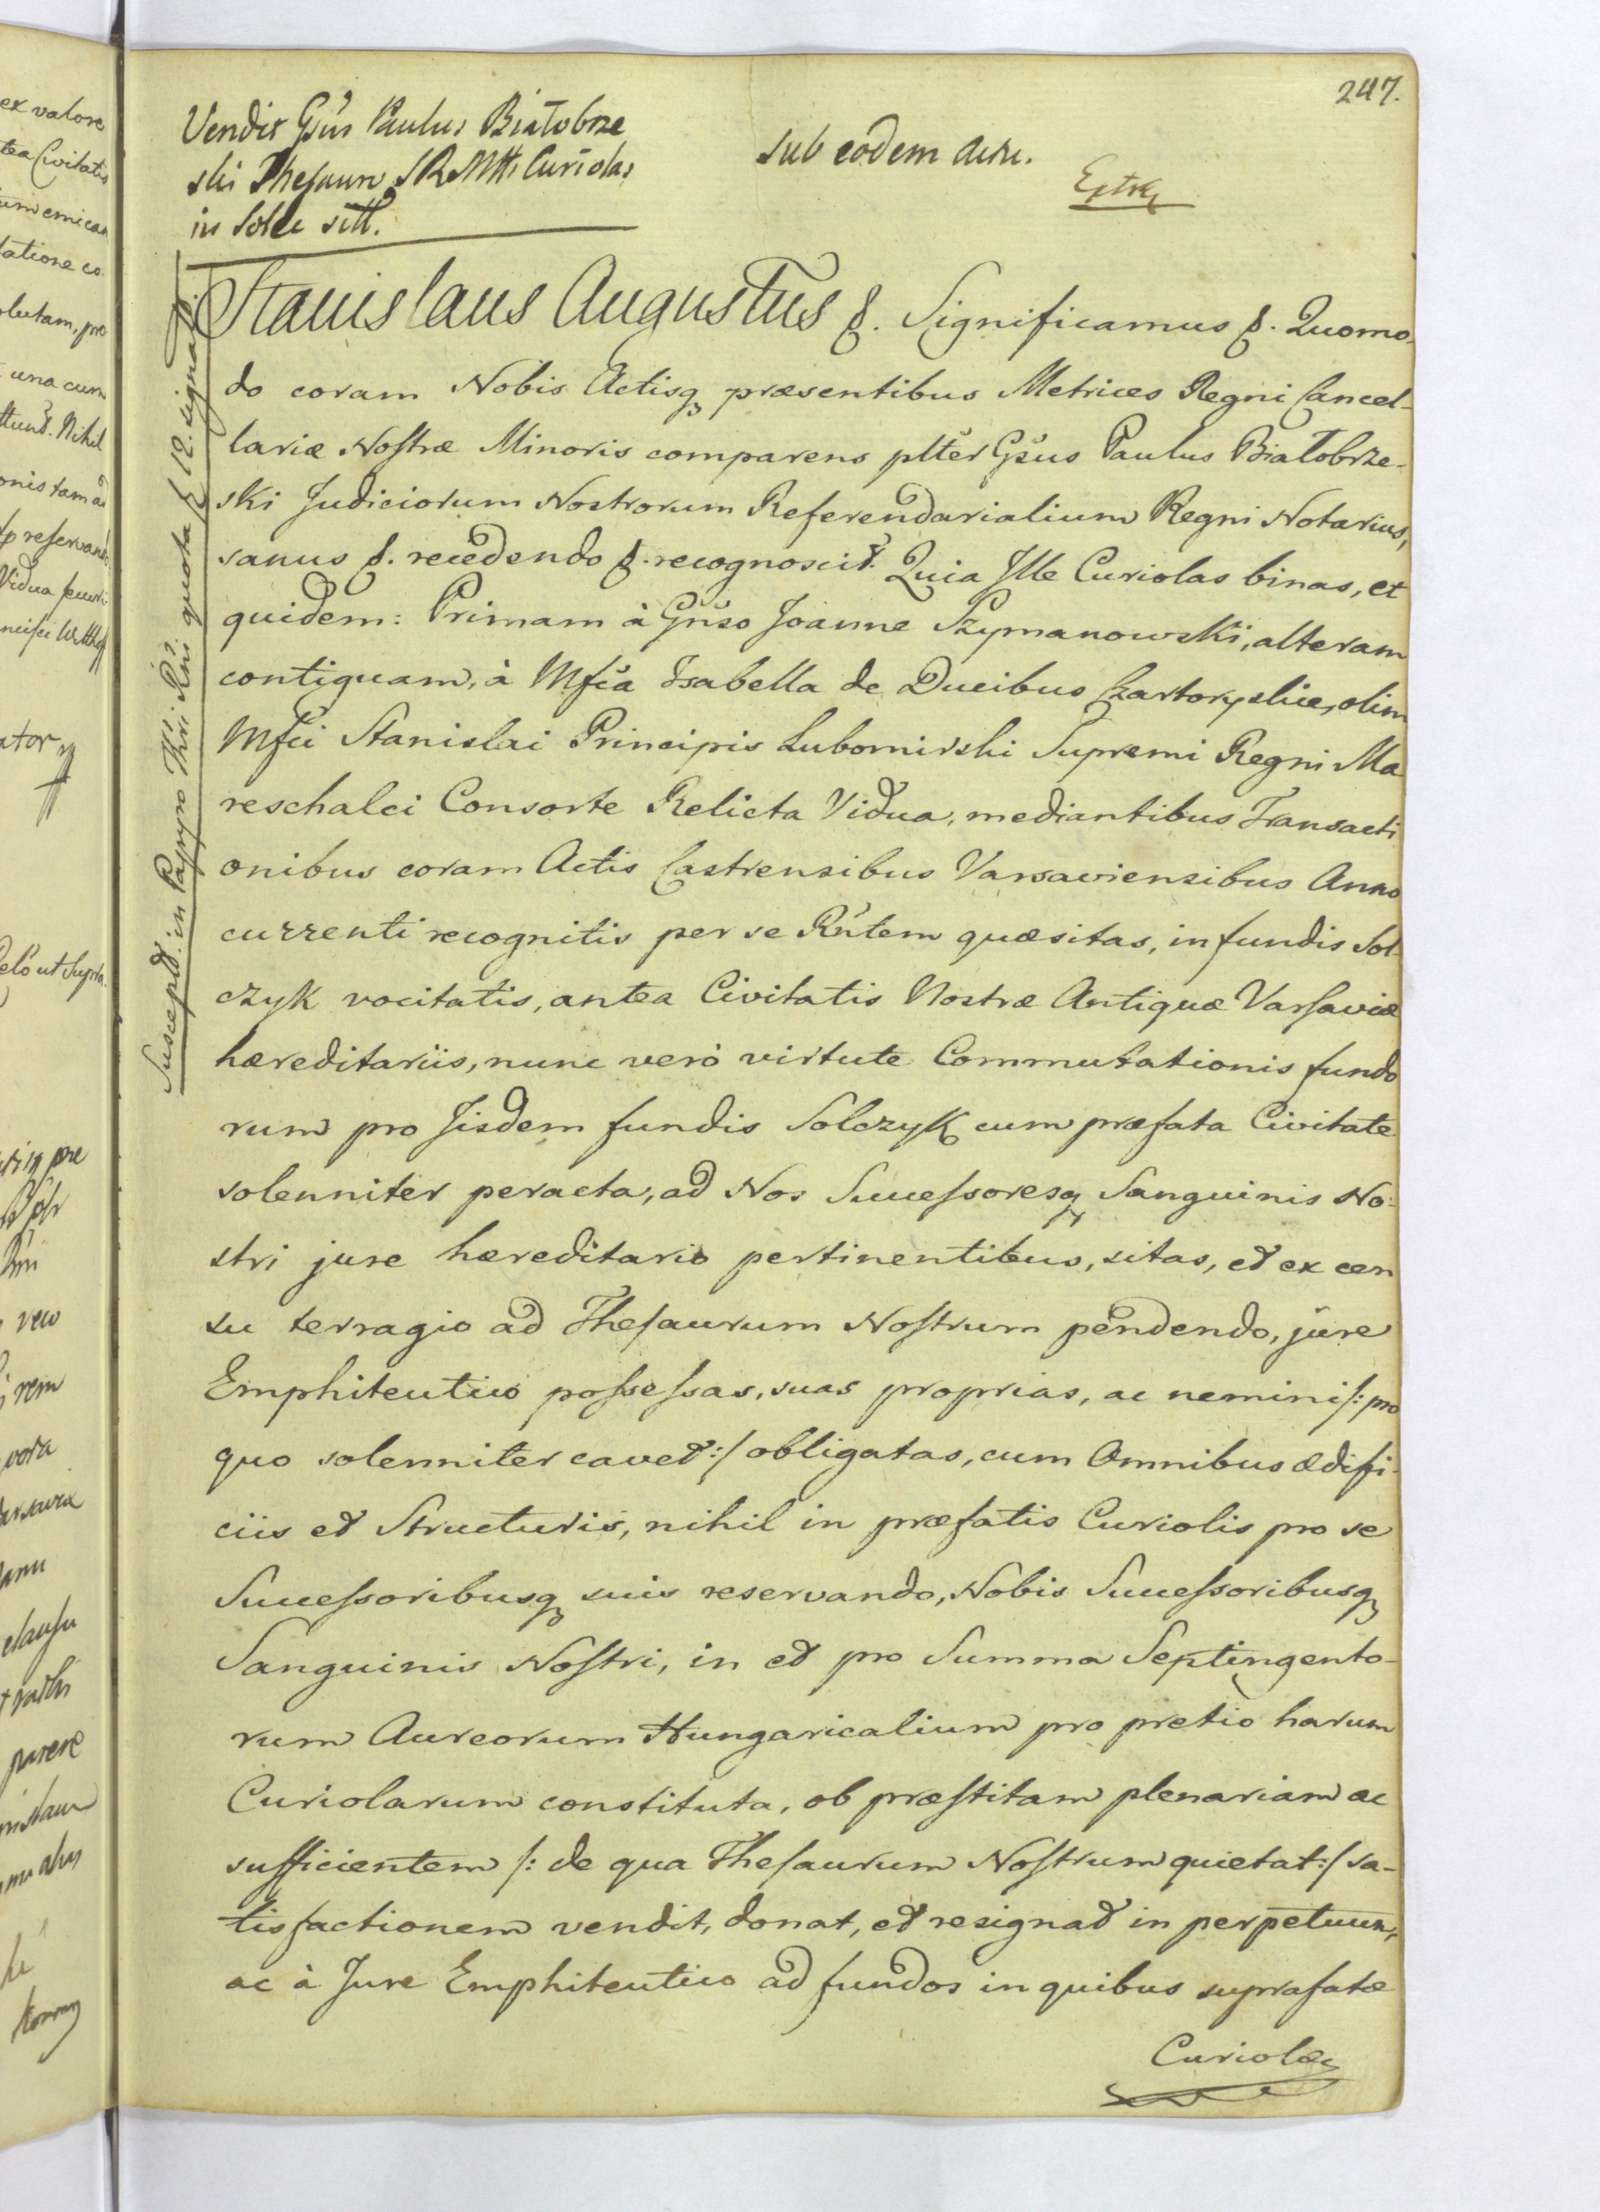 247.
Vendit Gsus Paulus Białobrze
ski Thesauro S R Mttis Curiolas
in Solec sitt.
sub eodem actu.
Extr
Suscept. in Papyro Thri Rni quota f 12. signato.
Stanislaus Augustus &. Significamus &. Quomo-
do coram Nobis Actisq præsentibus Metrices Regni Cancel-
lariæ Nostræ Minoris comparens plter Gsus Paulus Białobrze-
ski Judiciorum Nostrorum Referendarialium Regni Notarius,
sanus &. recedendo &. recognoscit. Quia Ille Curiolas binas, et
quidem: Primam à Gnso Joanne Szymanowski, alteram
contiguam, à Mfca Isabella de Ducibus Czartoryskie, olim
Mfci Stanislai Principis Lubomirski Supremi Regni Ma
reschalci Consorte Relicta Vidua, mediantibus Transacti
onibus coram Actis Castrensibus Varsaviensibus Anno
currenti recognitis per se Rntem quæsitas, in fundis Sol-
czyk vocitatis, antea Civitatis Nostræ Antiquæ Varsaviæ
hæreditariis, nunc verò virtute Commutationis fundo
rum pro Iisdem fundis Solczyk cum præfata Civitate
solenniter peracta, ad Nos Successoresq Sanguinis No-
stri jure hæreditario pertinentibus, sitas, et ex cen
su terragio ad Thesaurum Nostrum pendendo, jure
Emphiteutico possessas, suas proprias, ac nemini /: pro
quo solenniter cavet :/ obligatas, cum Omnibus ædifi-
ciis et Structuris, nihil in præfatis Curiolis pro se
Successoribusq suis reservando, Nobis Successoribusq
Sanguinis Nostri, in et pro Summa Septingento-
rum Aureorum Hungaricalium pro pretio harum
Curiolarum constituta, ob præstitam plenariam ac
sufficientem /: de qua Thesaurum Nostrum quietat :/ sa-
tisfactionem vendit, donat, et resignat in perpetuum,
ac à Jure Emphiteutico ad fundos in quibus suprafatæ
Curiolæ